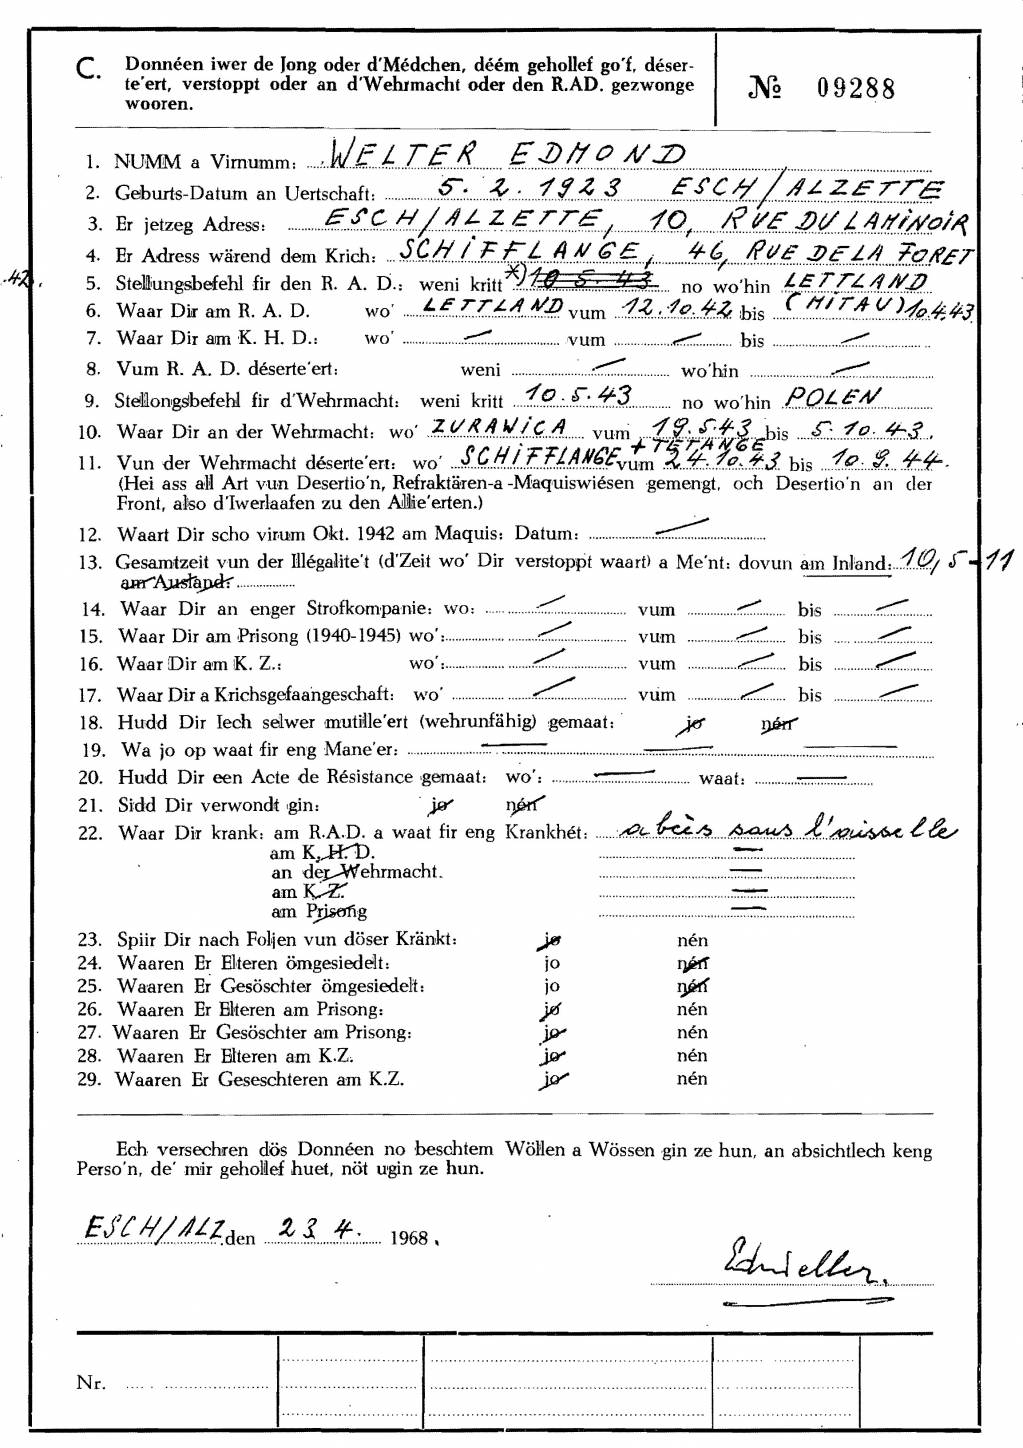 C. Donnéen iwer de Jong oder d'Médchen, déém gehollef go'f, déser-
te'ert, verstoppt oder an d'Wehrmacht oder den R.AD. gezwonge
wooren.
№ 09288
1. NUMM a Virnumm: WELTER EDMOND
2. Geburts-Datum an Uertschaft: 5. 2. 1923 ESCH/ALZETTE
3. Er jetzeg Adress: ESCH/ALZETTE, 10, RUE DU LAMINOIR
4. Er Adress wärend dem Krich: SCHIFFLANGE, 46, RUE DE LA FORET
.42. 5. Stellungsbefehl fir den R. A. D.: weni kritt *) 10 5. 43 no wo'hin LETTLAND
6. Waar Dir am R. A. D. wo' LETTLAND vum 12.10.42 bis (MITAU) 10.4.43
7. Waar Dir am K. H. D.: wo' — vum — bis —
8. Vum R. A. D. déserte'ert: weni — wo'hin —
9. Stellongsbefehl fir d'Wehrmacht: weni kritt 10.5.43 no wo'hin POLEN
10. Waar Dir an der Wehrmacht: wo' ZURAWICA vum 19.5.43 bis 5.10.43.
+ TETANGE
11. Vun der Wehrmacht déserte'ert: wo' SCHIFFLANGE vum 24.10.43 bis 10.9.44.
(Hei ass all Art vun Desertio'n, Refraktären-a -Maquiswiésen gemengt, och Desertio'n an der
Front, also d'Iwerlaafen zu den Allie'erten.)
12. Waart Dir scho virum Okt. 1942 am Maquis: Datum: —
13. Gesamtzeit vun der Illégalite't (d'Zeit wo' Dir verstoppt waart) a Me'nt: dovun am Inland: 10,5 - 11
am Ausland:
14. Waar Dir an enger Strofkompanie: wo: — vum — bis —
15. Waar Dir am Prisong (1940-1945) wo': — vum — bis —
16. Waar Dir am K. Z.: wo': — vum — bis —
17. Waar Dir a Krichsgefaangeschaft: wo' — vum — bis —
18. Hudd Dir Iech selwer mutille'ert (wehrunfähig) gemaat: jo nén
19. Wa jo op waat fir eng Mane'er: — — —
20. Hudd Dir een Acte de Résistance gemaat: wo': — waat: —
21. Sidd Dir verwondt gin: jo nén
22. Waar Dir krank: am R.A.D. a waat fir eng Krankhét: abcès sous l'aisselle
am K. H. D. —
an der Wehrmacht. —
am K. Z. —
am Prisong —
23. Spiir Dir nach Foljen vun döser Kränkt: jo nén
24. Waaren Er Elteren ömgesiedelt: jo nén
25. Waaren Er Gesöschter ömgesiedelt: jo nén
26. Waaren Er Elteren am Prisong: jo nén
27. Waaren Er Gesöschter am Prisong: jo nén
28. Waaren Er Elteren am K.Z. jo nén
29. Waaren Er Geseschteren am K.Z. jo nén
Ech versechren dös Donnéen no beschtem Wöllen a Wössen gin ze hun, an absichtlech keng
Perso'n, de' mir gehollef huet, nöt ugin ze hun.
ESCH/ALZ. den 23 4. 1968.
Nr.